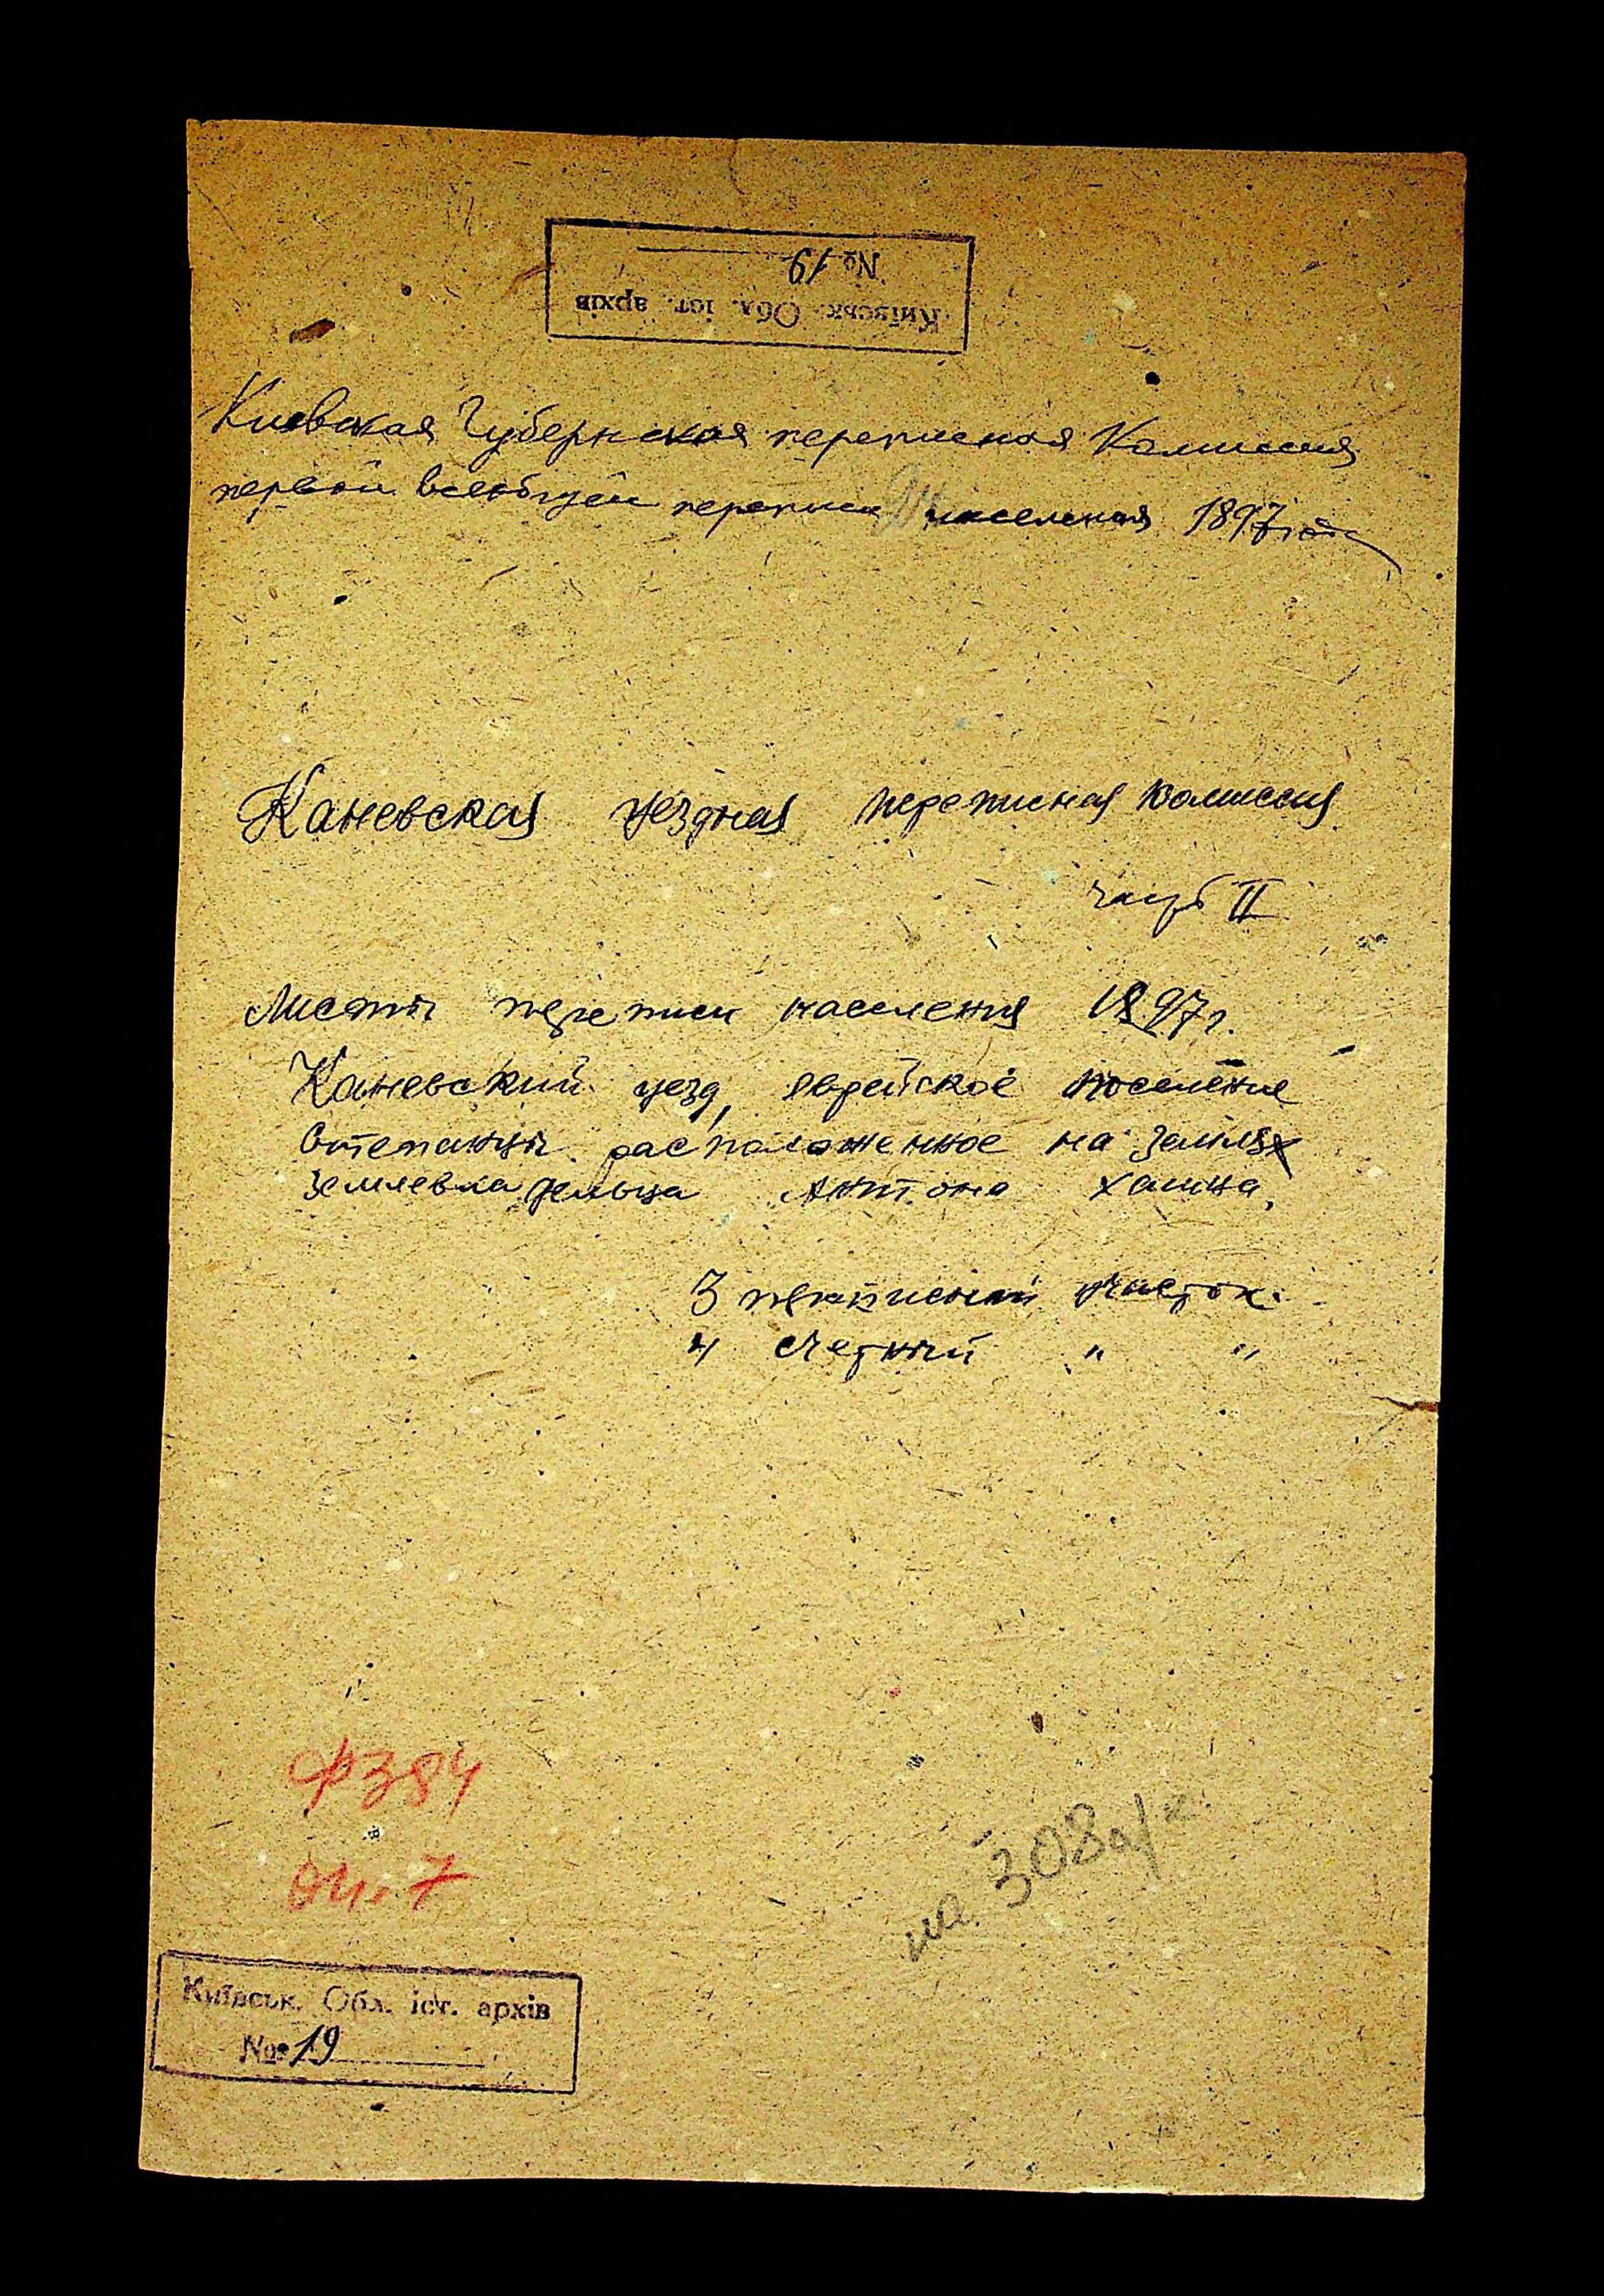 № 19
Київськ. Обл. іст. архів
Киевская Губернская переписная Комиссия
первой всеобщей переписи населения 1897 года
Каневская уездная переписная комиссия
часть II
Листы переписи населения 1897 г.
Каневский уезд, еврейское поселение
Степанцы расположенное на землях
землевладельца Антона Хаина.
3 переписный участок.
4 счетный " "
Ф 384
Оп. 7
на 308 а/к.
Київськ. Обл. іст. архів
№ 19